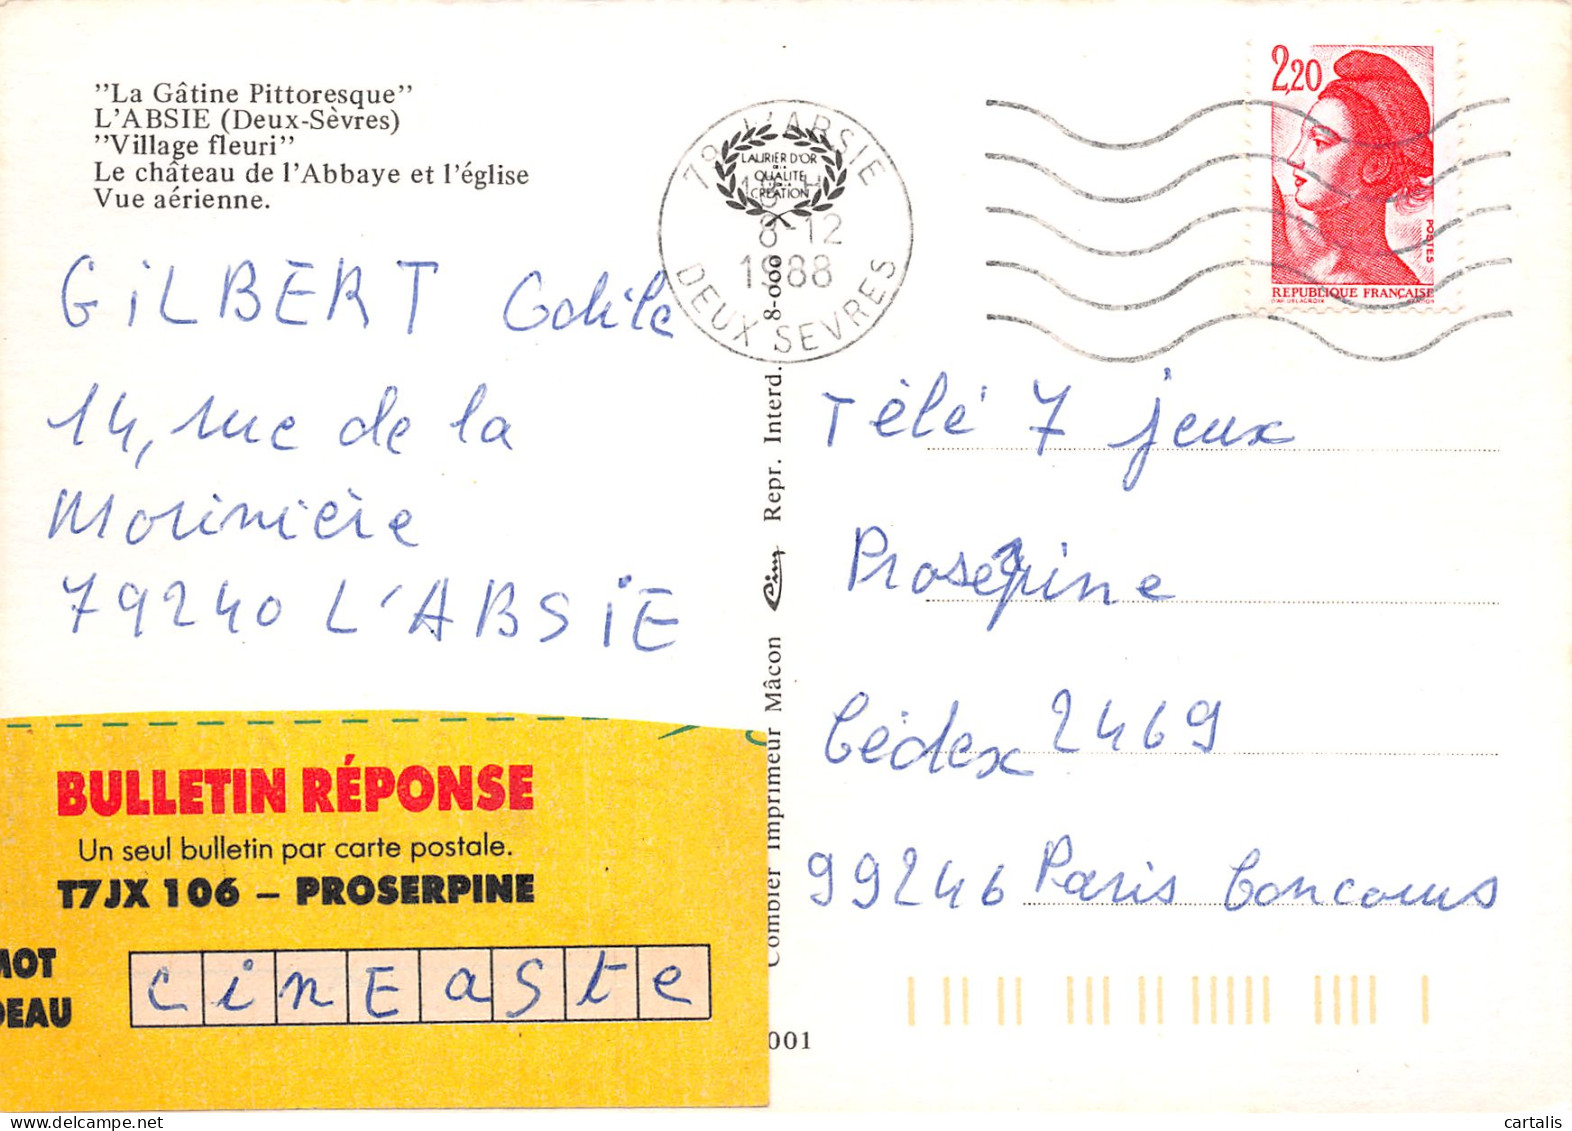 "La Gâtine Pittoresque"
L'ABSIE (Deux-Sèvres)
"Village fleuri"
Le château de l'Abbaye et l'église
Vue aérienne.
GiLBERT Odile
14, rue de la
Morinière
79240 L'ABSiE
BULLETIN RÉPONSE
Un seul bulletin par carte postale.
T7JX 106 – PROSERPINE
MOT
DEAU
cinEaSte
L'ABSIE
8-12
1988
DEUX SEVRES
LAURIER D'OR
DE LA
QUALITE
CREATION
Combier Imprimeur Mâcon Cim Repr. Interd. 8-000
001
2,20
POSTES
REPUBLIQUE FRANÇAISE
Télé 7 jeux
Proserpine
Cédex 2469
99246 Paris Concours
cartalis